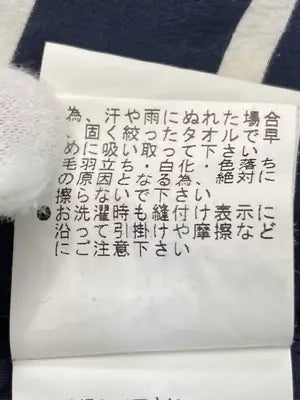 為、汗や雨にぬれた場合
、固く絞ったタオルで早
めに吸い取って下さい
毛羽立ち・白化・色落ち
の原因となる為、絶対に
擦らないで下さい
●お洗濯時も縫付け表示に
沿って引掛けや摩擦など
にご注意下さい